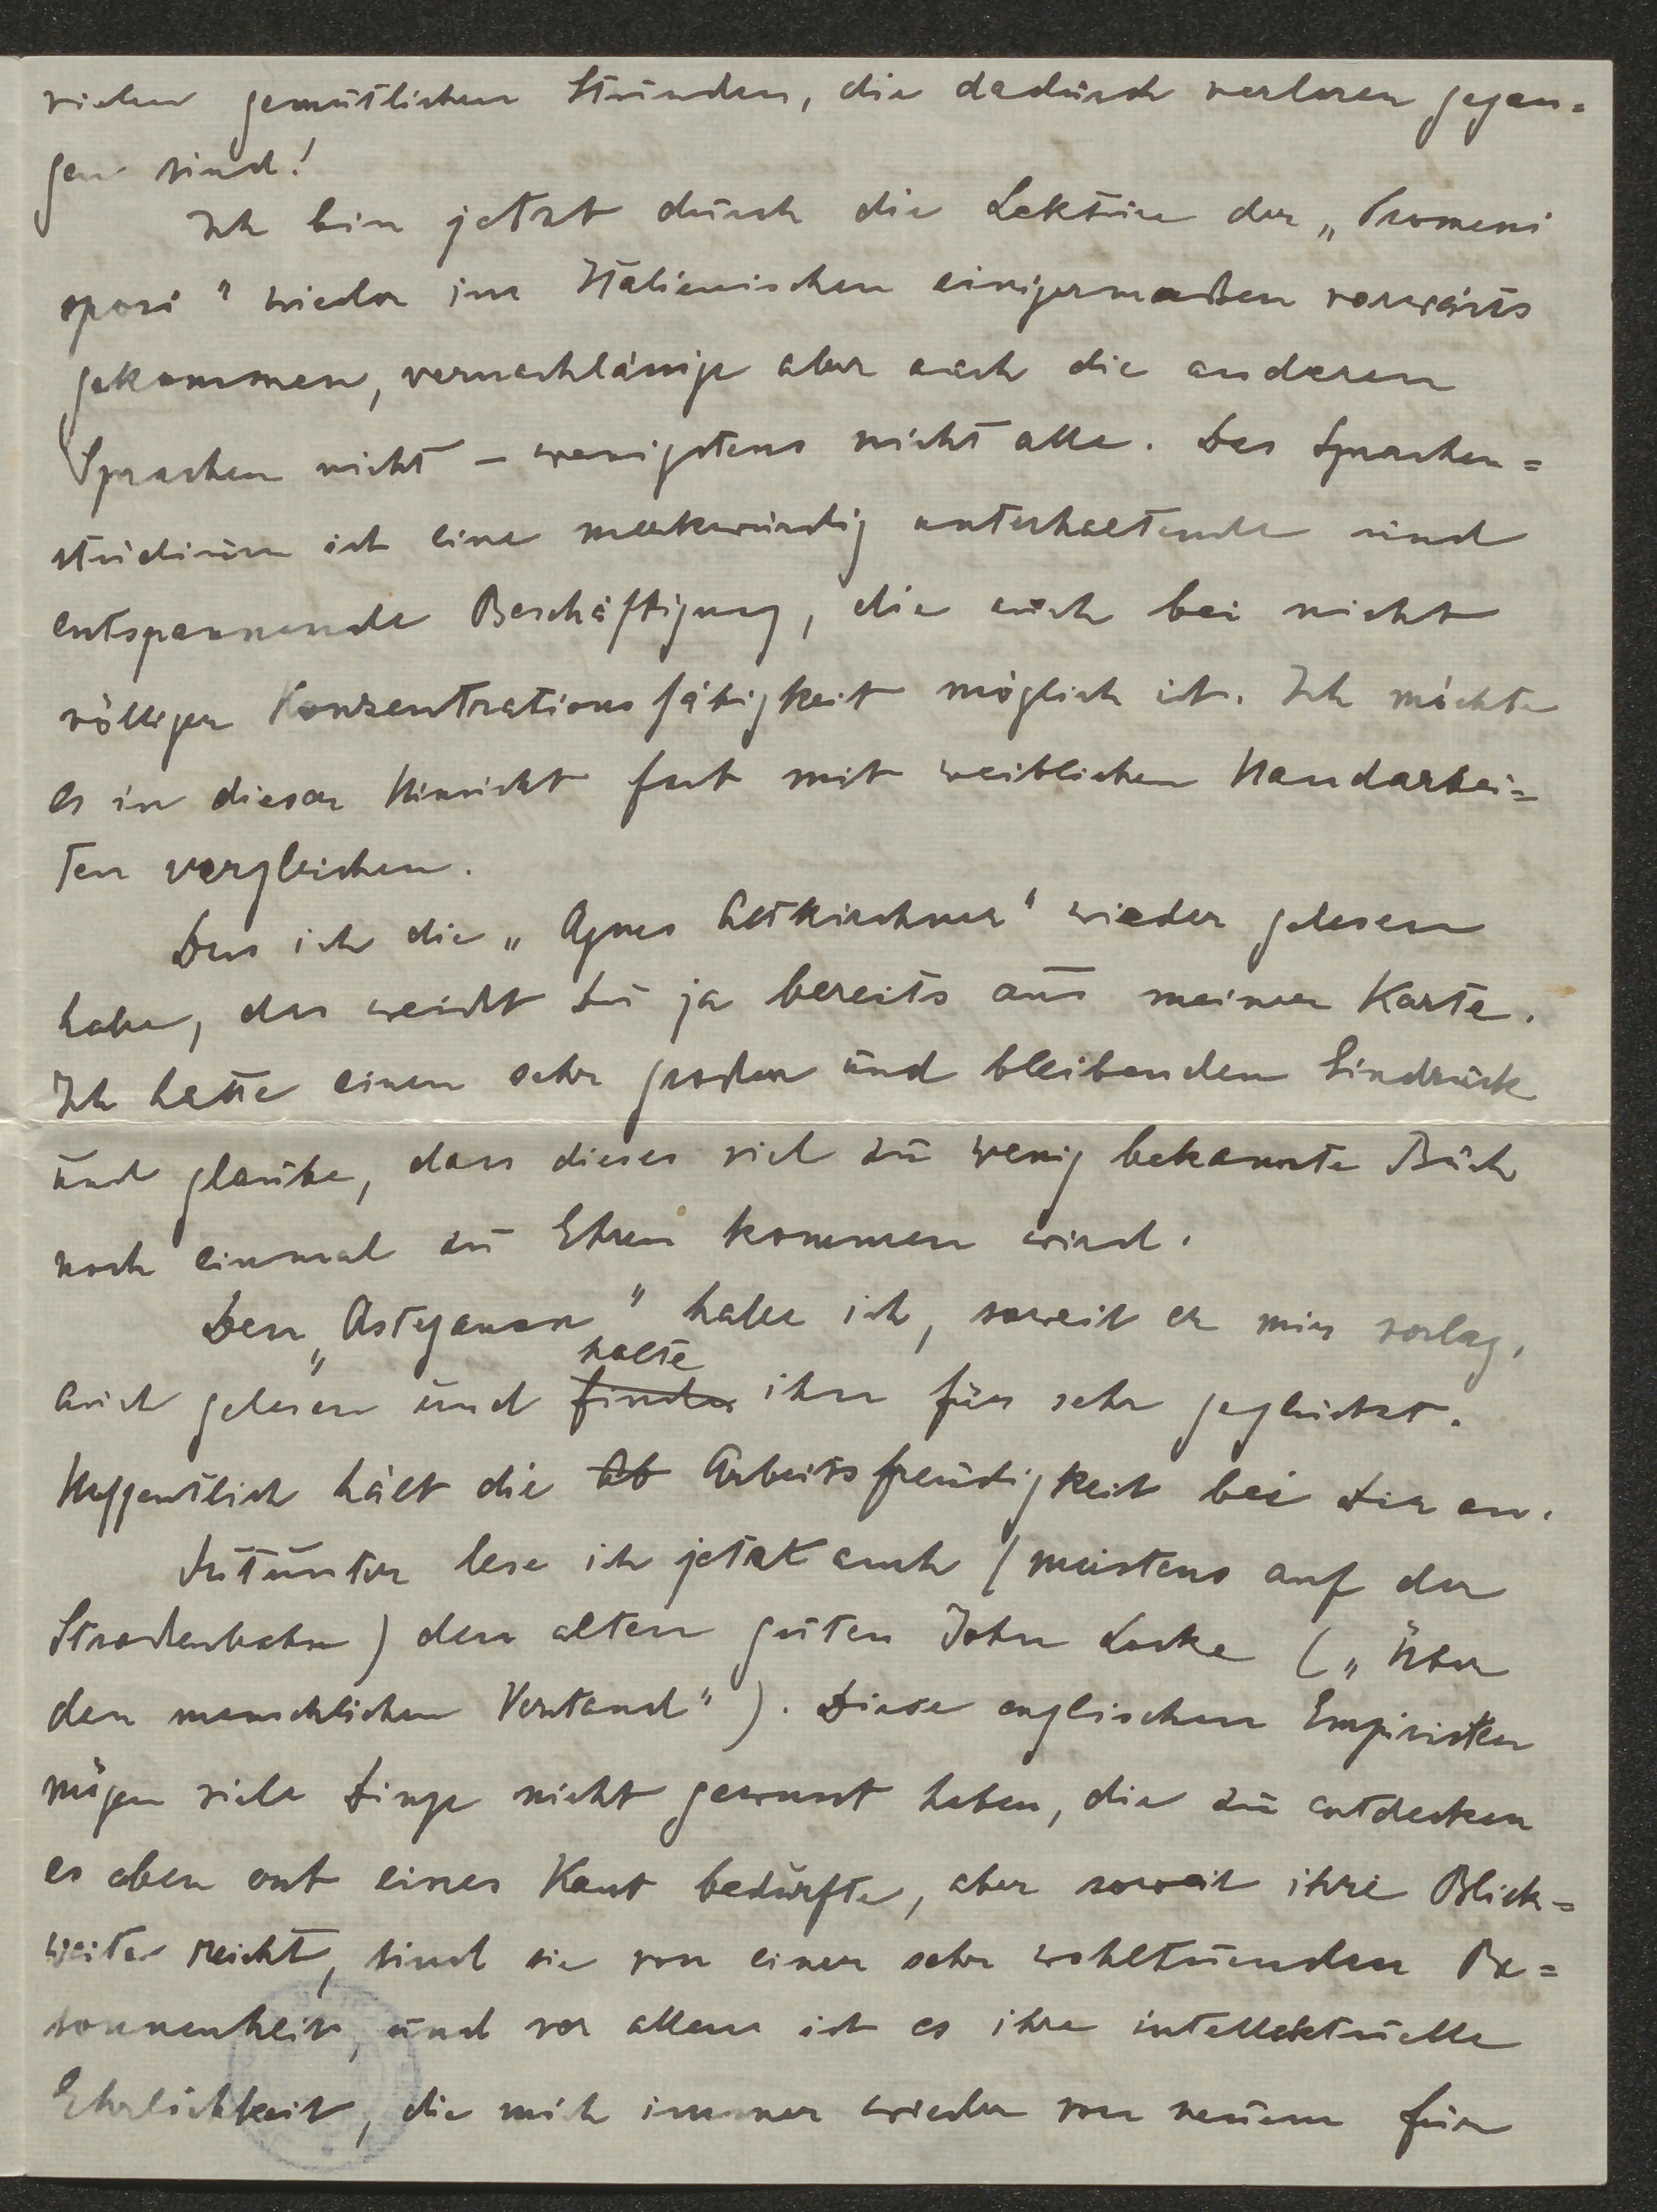 vielen gemütlichen Stunden, die dadurch verloren gegan=
gen sind!
Ich bin jetzt durch die Lektüre der „Promessi
sposi" wieder im Italienischen einigermaßen vorwärts
gekommen, vernachlässige aber auch die anderen
Sprachen nicht – wenigstens nicht alle. Das Sprachen=
studium ist eine merkwürdig unterhaltende und
entspannende Beschäftigung, die auch bei nicht
völliger Konzentrationsfähigkeit möglich ist. Ich möchte
es in dieser Hinsicht fast mit weiblichen Handarbei=
ten vergleichen.
Dass ich die „Agnes Altkirchner" wieder gelesen
habe, das weißt Du ja bereits aus meiner Karte.
Ich hatte einen sehr großen und bleibenden Eindruck
und glaube, dass dieses viel zu wenig bekannte Buch
noch einmal zu Ehren kommen wird.
Den „Asteganon" habe ich, soweit er mir vorlag,
auch gelesen und finde halte ihn für sehr geglückt.
Hoffentlich hält die Ab Arbeitsfreudigkeit bei Dir an.
Mitunter lese ich jetzt auch (meistens auf der
Straßenbahn) den alten guten John Locke („Über
den menschlichen Verstand"). Diese englischen Empiristen
mögen viele Dinge nicht gewusst haben, die zu entdecken
es eben erst eines Kant bedürfte, aber soweit ihre Blick=
weite reicht, sind sie von einer sehr wohltuenden Be=
sonnenheit, und vor allem ist es ihre intellektuelle
Ehrlichkeit, die mich immer wieder von neuem für